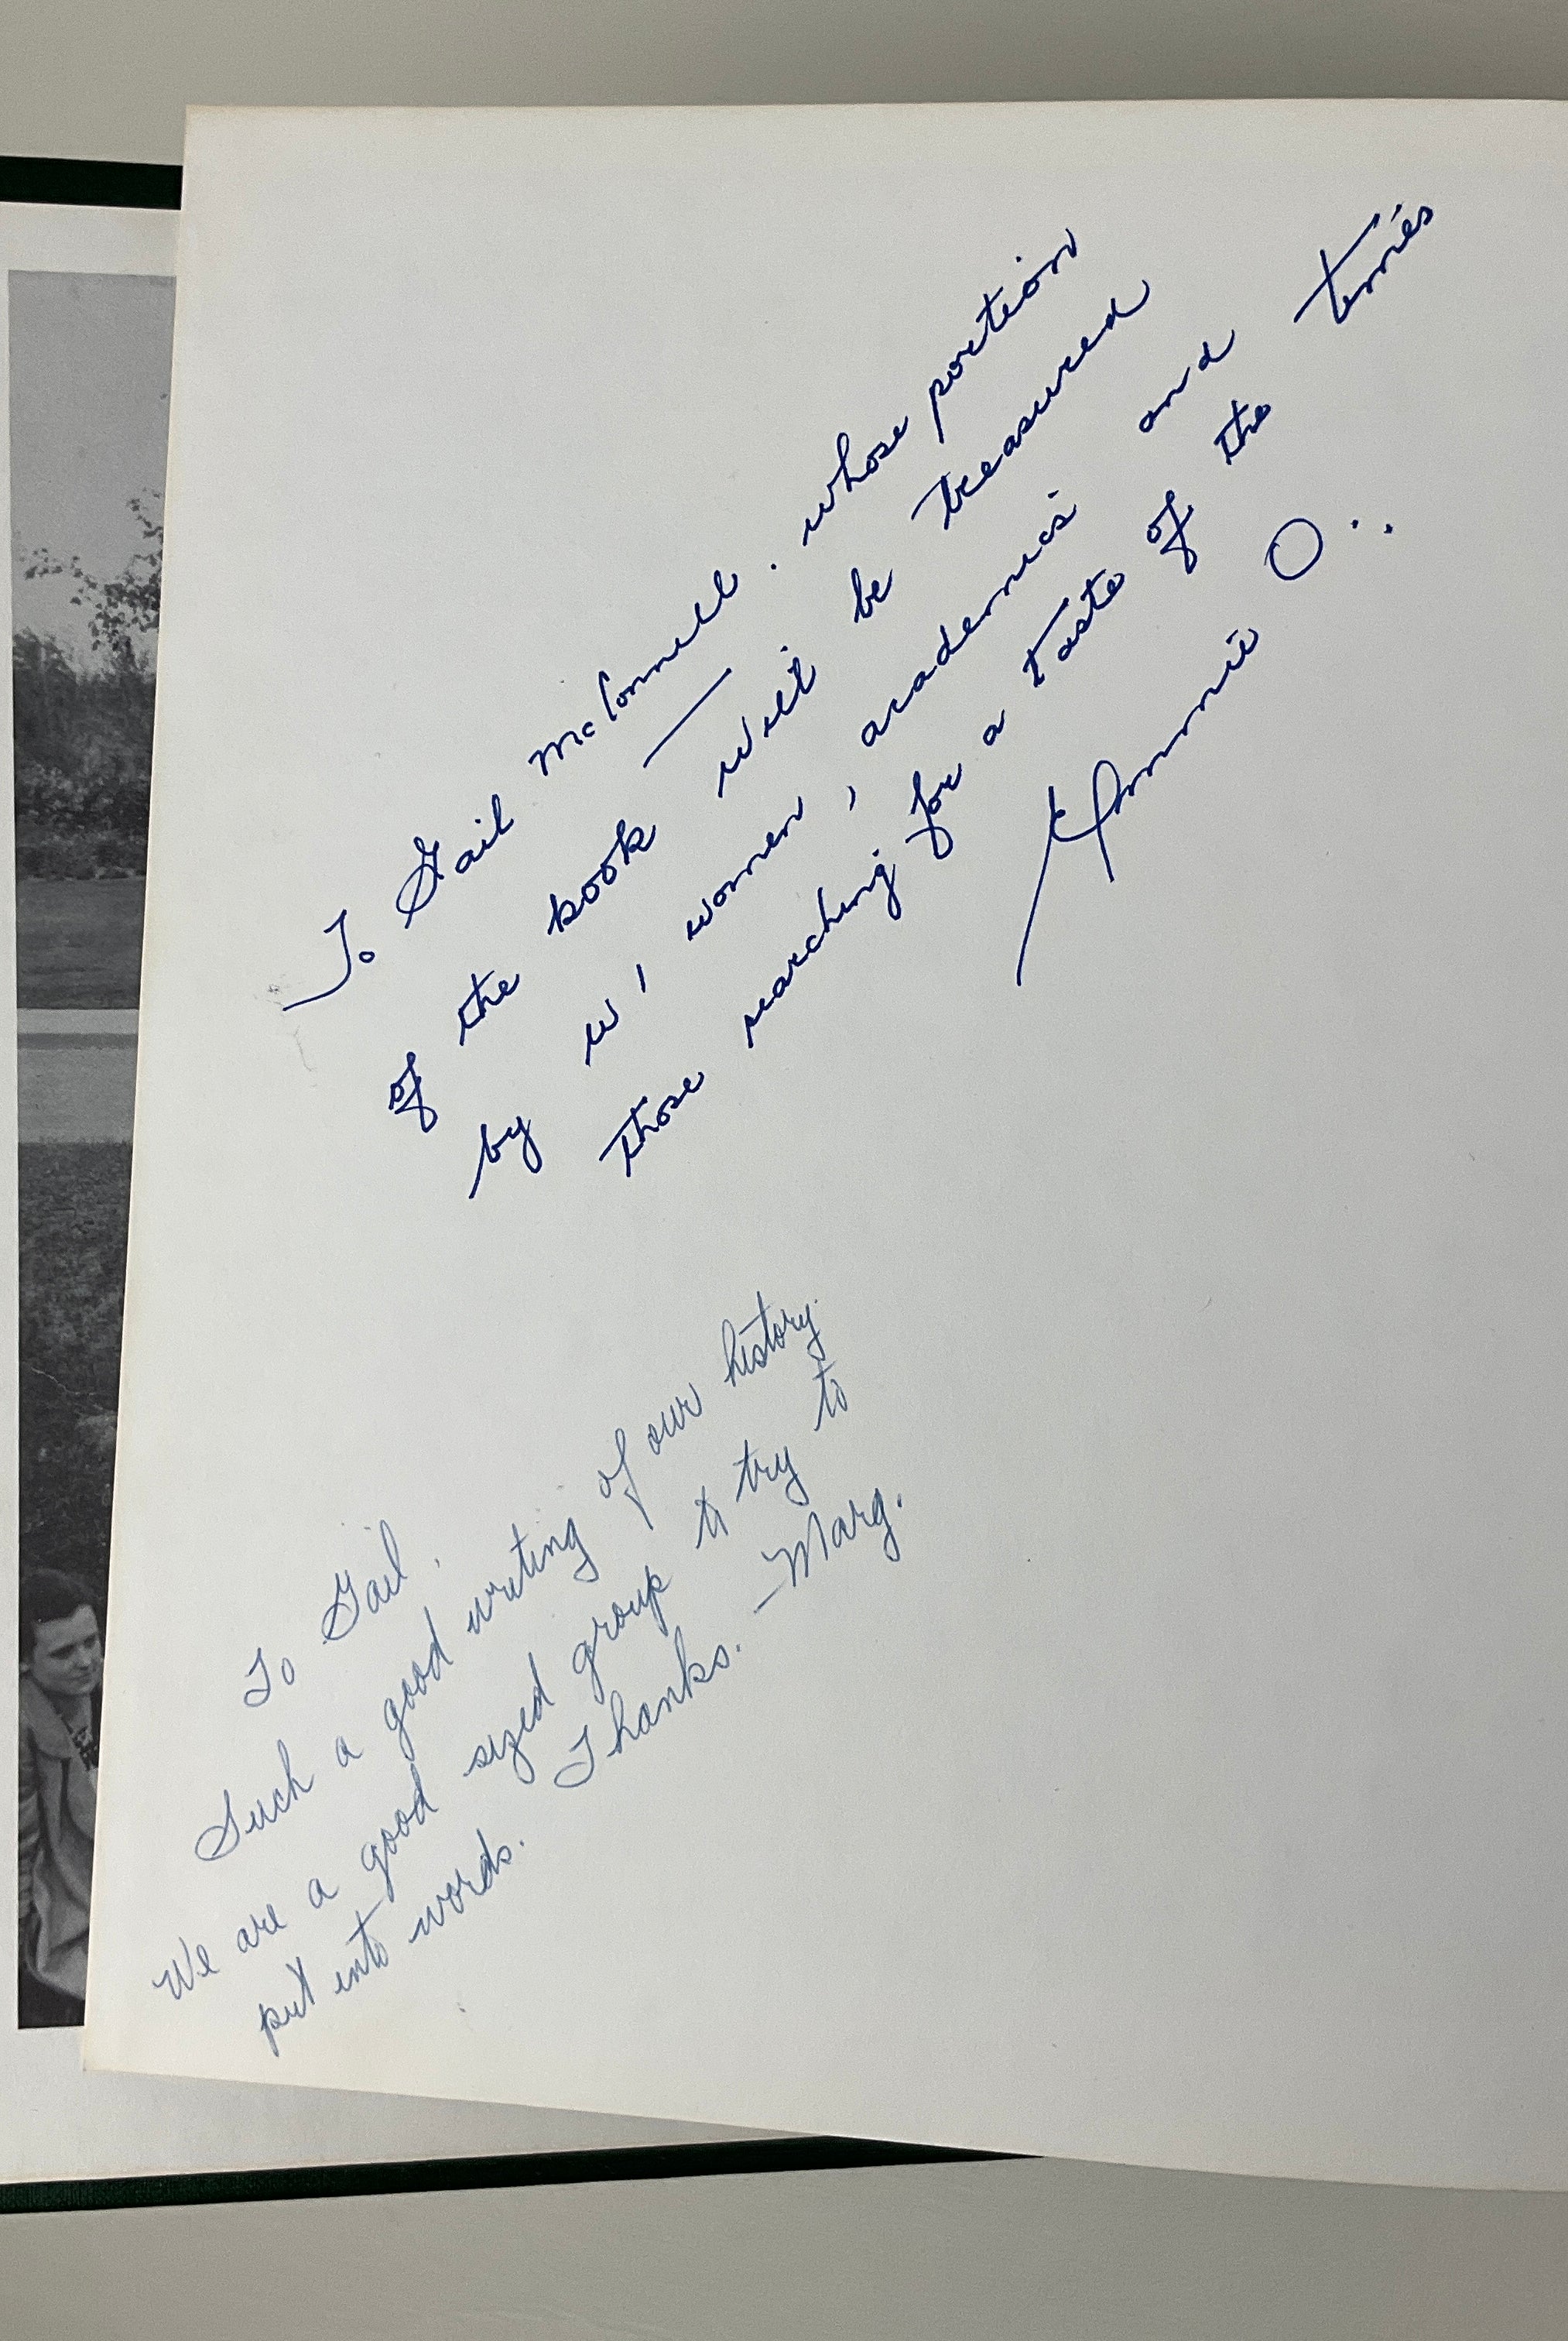 To Gail McConnell. whose portion
of the book — will be treasured
by w' women, academics and
those searching for a taste of the times
Annie O..
To Gail,
Such a good writing of our history.
We are a good sized group to try to
put into words. Thanks. —Marg.